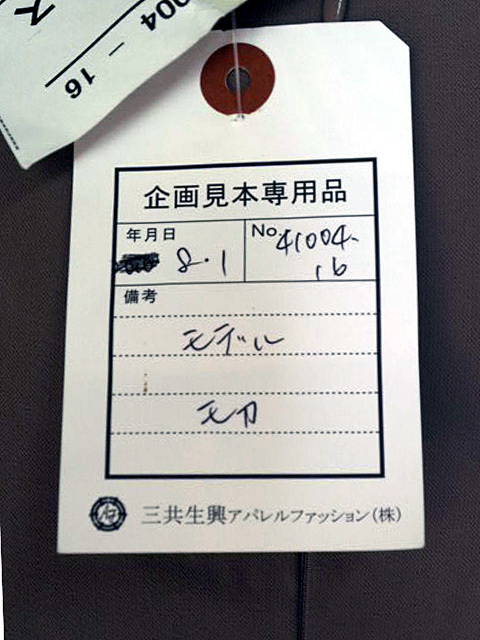 004-16
ス
企画見本専用品
年月日
8.1
No.
41004-
16
備考
モデル
三共生興アパレルファッション(株)